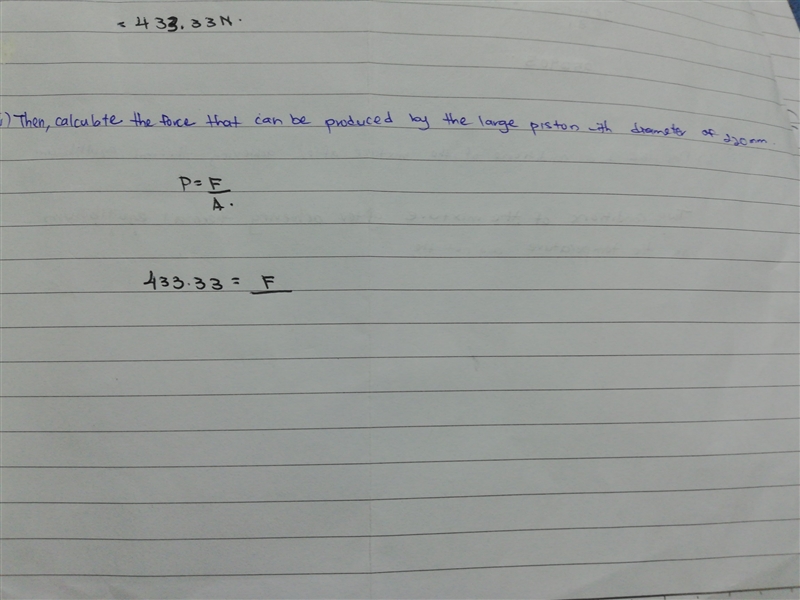 = 433.33N.
i) Then, calculate the force that can be produced by the large piston with diameter of 220mm.
P = F
A.
433.33 = F